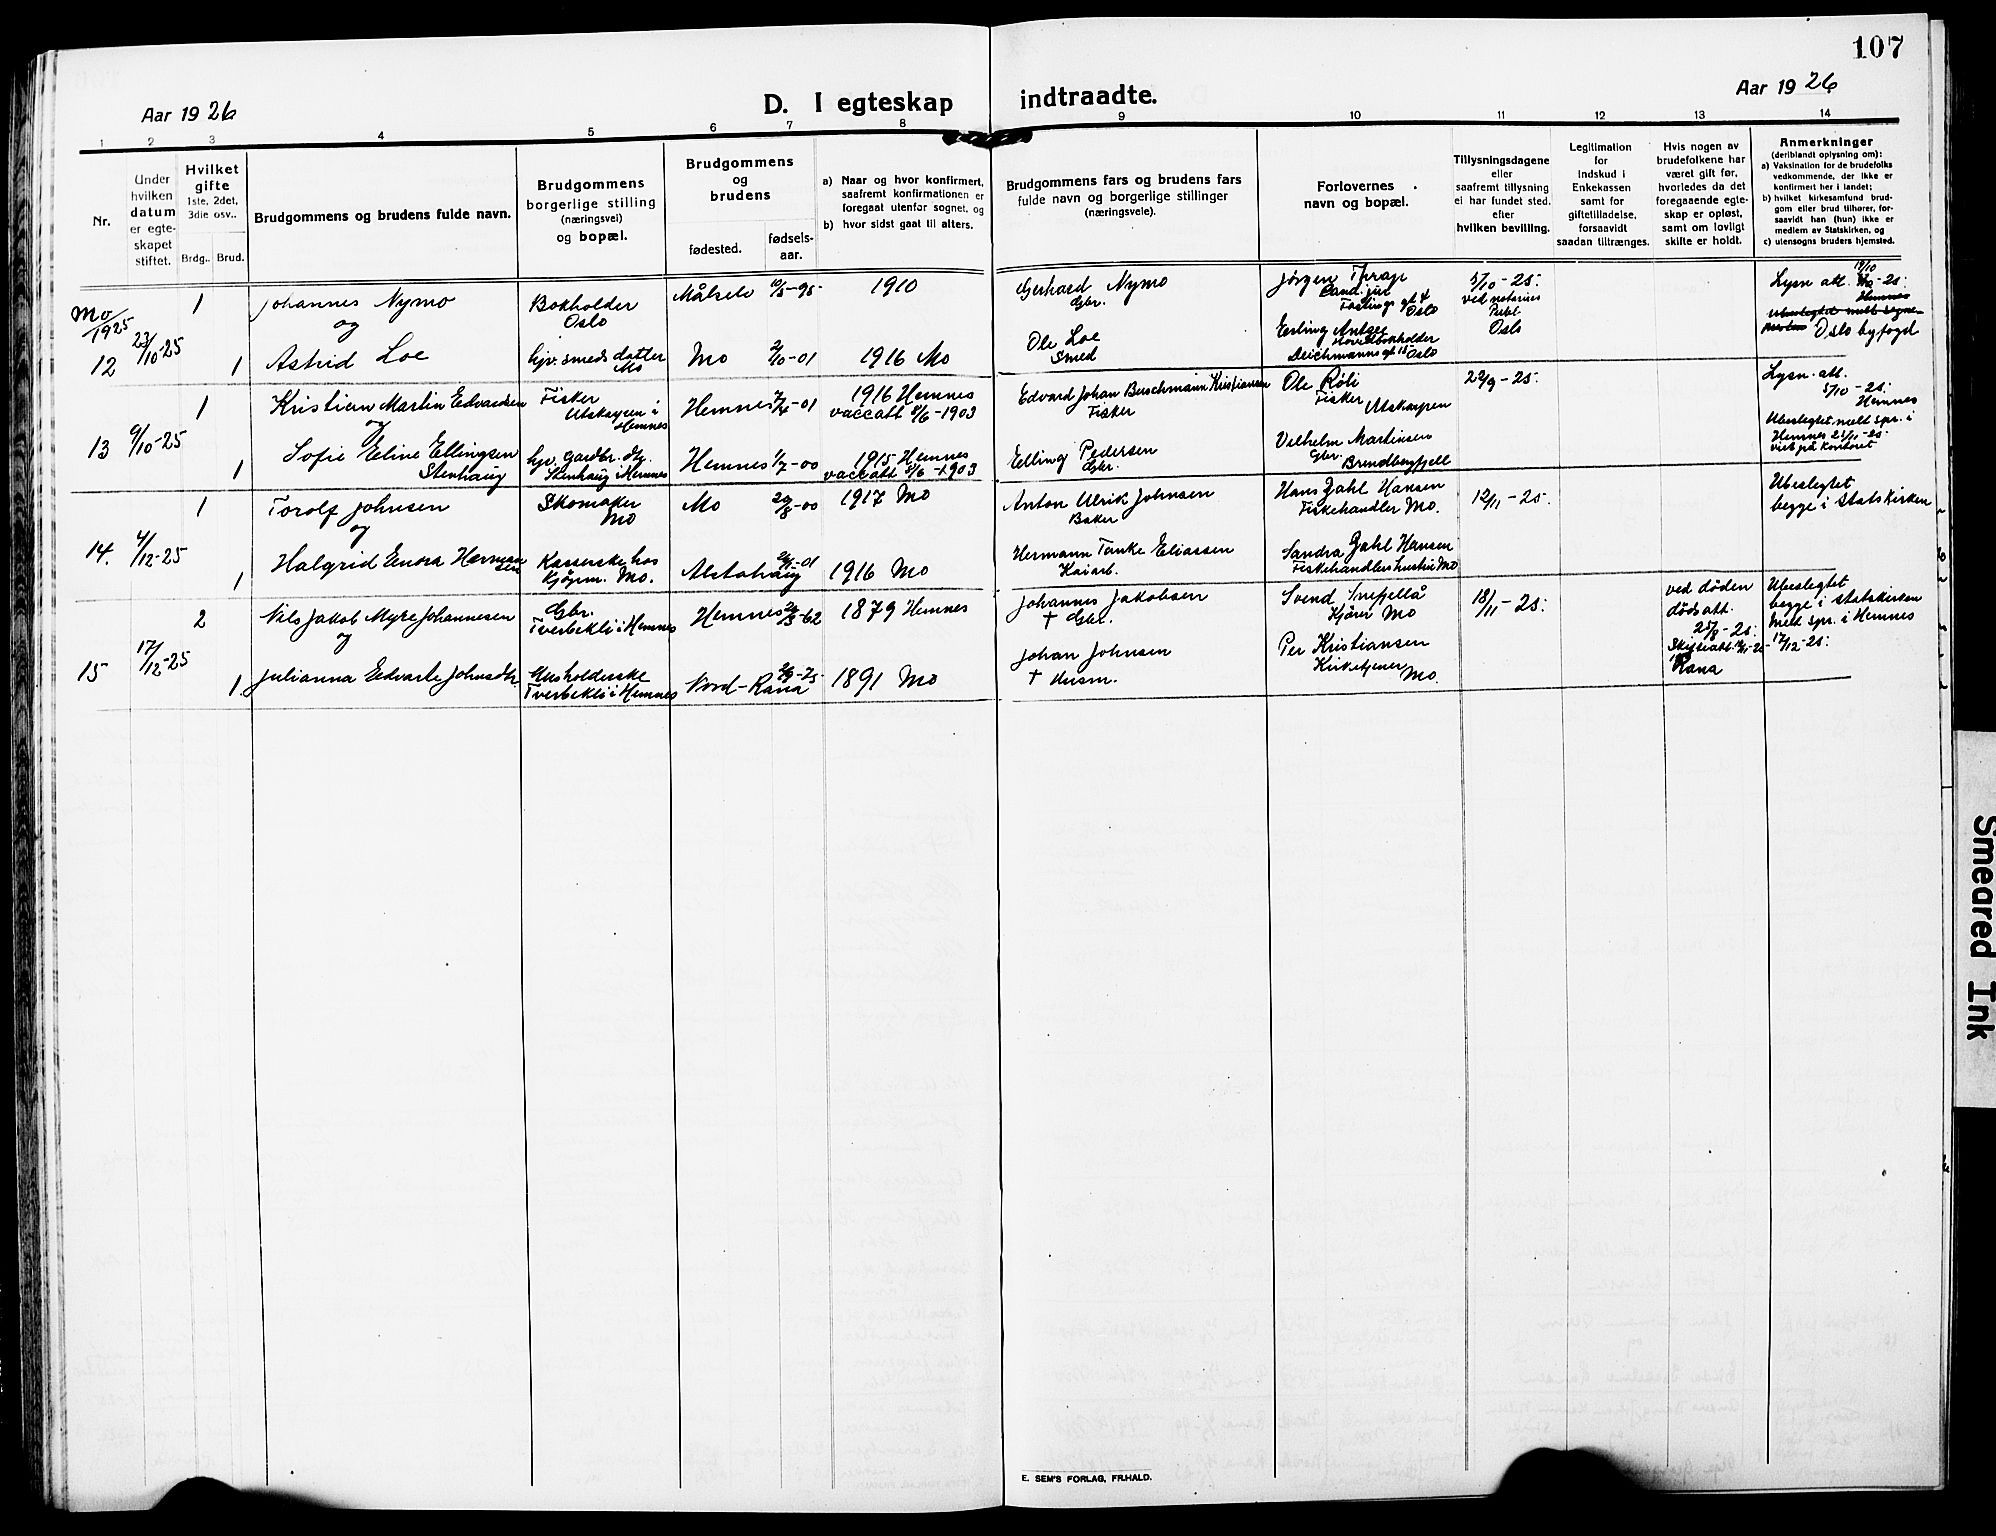 107
Aar 1926
D. I egteskap indtraadte.
Aar 1926
1 2 3 4 5 6 7 8 9 10 11 12 13 14
Nr.
Under hvilken datum er egteskapet stiftet.
Hvilket gifte 1ste, 2det, 3die osv..
Brdg.. Brud.
Brudgommens og brudens fulde navn.
Brudgommens borgerlige stilling (næringsvei) og bopæl.
Brudgommens og brudens
fødested.
fødsels-aar.
a) Naar og hvor konfirmert, saafremt konfirmationen er foregaat utenfor sognet, og
b) hvor sidst gaat til alters.
Brudgommens fars og brudens fars fulde navn og borgerlige stillinger (næringsveie).
Forlovernes navn og bopæl.
Tillysningsdagene eller saafremt tillysning ei har fundet sted, efter hvilken bevilling.
Legitimation for Indskud i Enkekassen samt for giftetilladelse, forsaavidt saadan tiltrænges.
Hvis nogen av brudefolkene har været gift før, hvorledes da det foregaaende egteskap er opløst, samt om lovligt skifte er holdt.
Anmerkninger (deriblandt oplysning om):
a) Vaksination for de brudefolks vedkommende, der ikke er konfirmert her i landet;
b) hvilket kirkesamfund brudgom eller brud tilhører, forsaavidt han (hun) ikke er medlem av Statskirken, og
c) utensogns bruders hjemsted.
Mo/1925
12 23/10-25
1 Johannes Nymo
og
Bokholder
Oslo
Målselv 10/5-95 1910
Gerhard Nymo
Gbr.
Jørgen
Cand. jur
Oslo
5/10-25.
ved notarius
Publ
Oslo
Lysn att. 19/10-25.
Hemnes
Oslo byfogd
1 Astrid Loe
hjv. smeds datter
Mo
Mo 2/10-01 1916 Mo
Ole Loe
Smed
Erling
Hovedbokholder
Deichmannsgt 15 Oslo
13 9/10-25
1 Kristian Martin Edvardsen
og
Fisker
Utskarpen i
Hemnes
Hemnes 7/4-01
1916 Hemnes
vaccatt 8/6-1903
Edvard Johan Buschmann Kristiansen
Fisker
Ole Røli
Fisker
Utskarpen
22/9-25.
Lysn. att.
5/10-25.
Hemnes
Ubeslegtet meld spr. i
Hemnes
1 Sofie Eline Ellingsen
Stenhaug
hjv. Gardbr. dtr.
Stenhaug i Hemnes
Hemnes 1/7-00
1915 Hemnes
vaccatt 8/6-1903
Elling Pedersen
Gbr.
Vilhelm Martinsen
Gbr.
14. 4/12-25
1 Torolf Johnsen
og
Skomaker
Mo
Mo 29/8-00 1917 Mo
Anton Ulrik Johnsen
Baker
Hans Zahl Hansen
Fiskehandler Mo.
12/11-25.
Ubeslegtet
begge i Statskirken
1 Halgrid Enora Hermansen
Kasserske hos
Kjøpm. Mo.
Alstahaug 1916 Mo
Hermann Tanke Eliassen
Kaiarb.
Sandra Zahl Hansen
Fiskehandlers hustru Mo
15 17/12-25
2 Nils Jakob Myre Johannesen
og
Gbr.
Tverbekli i Hemnes
Hemnes 1879 Hemnes
Johannes Jakobsen
† Gbr.
Svend Snefjellå
Kjører Mo
18/11-25.
ved døden
dødsatt.
25/8-25.
Skifteatt.
Rana
Ubeslegtet
begge i Statskirken
Meld spr. i Hemnes
17/12-25.
1. Julianna Edvarte Johnsdtr.
Husholderske
Tverbekli i Hemnes
Nord-Rana 1891 Mo
Johan Johnsen
† Husm.
Per Kristiansen
Kirketjener
Mo.
E. SEM'S FORLAG, FR.HALD.
Smeared Ink